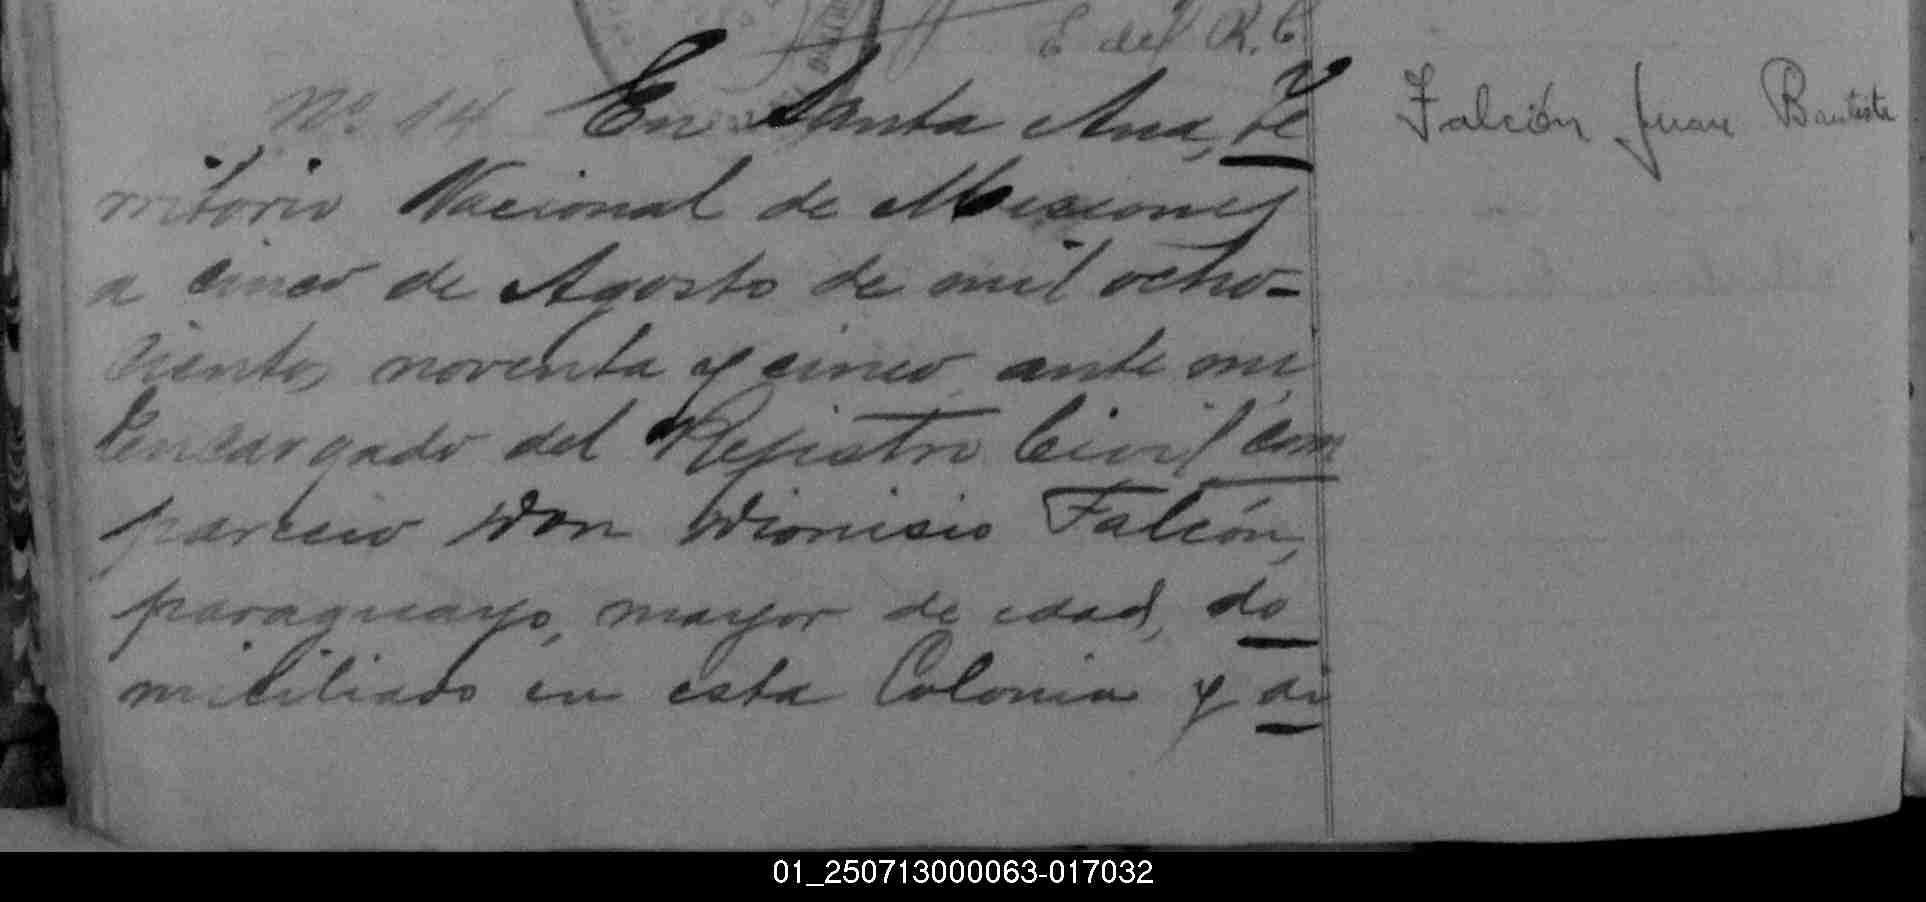 E del R. C.
Nº 14 En Santa Ana, Te
rritorio Nacional de Misiones
a cinco de Agosto de mil ocho=
cientos noventa y cinco, ante mi,
Encargado del Registro Civil com
parecio Don Dionisio Falcón,
paraguayo, mayor de edad, do
miciliado en esta Colonia y
Falción Juan Bautista
01_250713000063-017032